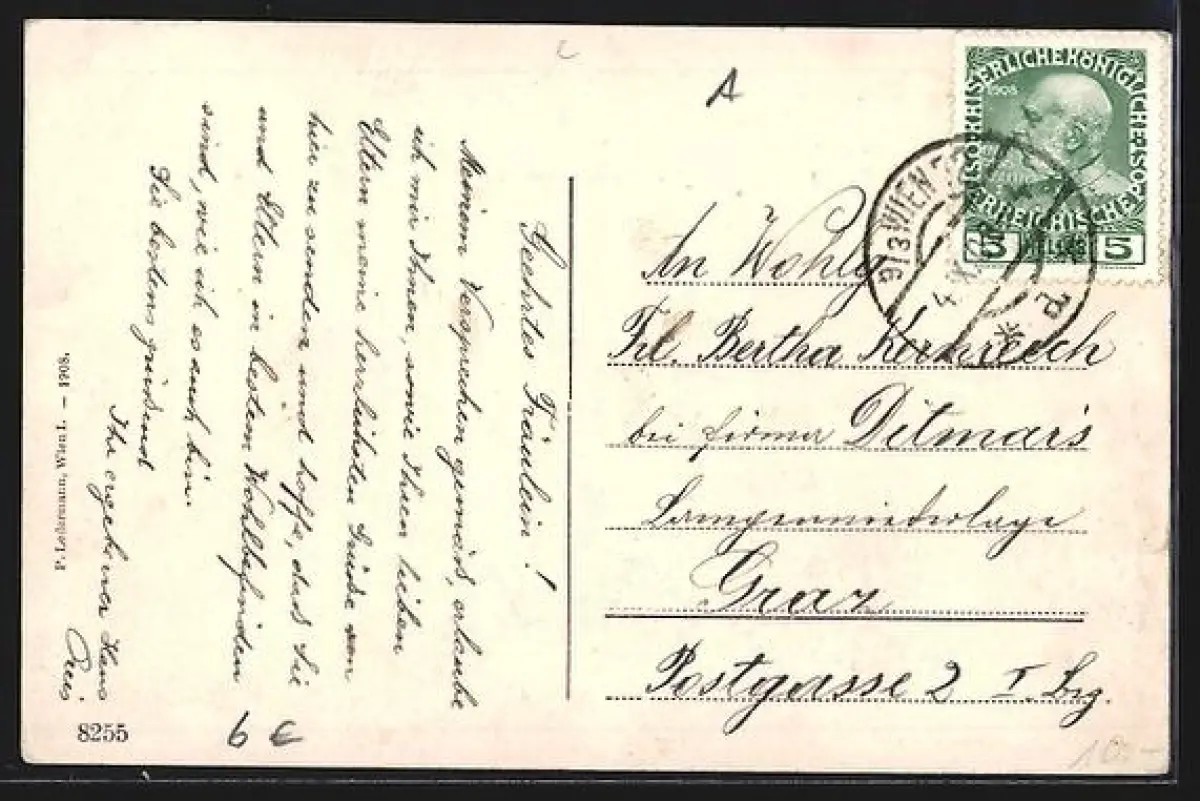 Geehrtes Fräulein!
Meinem Versprechen gemäß, erlaube
ich mir Ihnen, sowie Ihren lieben
Eltern meine herzlichsten Grüße von
hier zu senden und hoffe, dass Sie
und Eltern in bestem Wohlbefinden
sind, wie ich es auch bin.
Sie bestens grüßend
Ihr ergebener Hans
P. Ledermann, Wien I. — 1908.
8255
A
An Wohlg
Frl. Bertha
bei Firma Ditmar's
Lampenniederlage
Graz
Postgasse 2 I.
KAISERLICHE KÖNIGLICHE ÖSTERREICHISCHE POST
1908
5 HELLER 5
9/3 WIEN
10.-